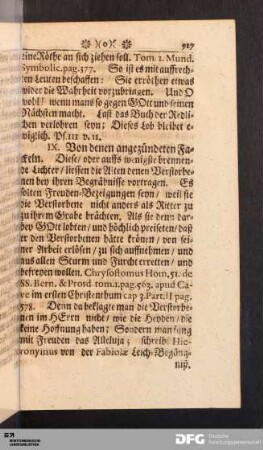 ❀ )o( ❀ 927
eine Röthe an sich ziehen soll. Tom. 1. Mund.
Symbolic. pag. 577. So ist es mit auffrech-
ten Leuten beschaffen: Sie erröthen etwas
wider die Wahrheit vorzubringen. Und O
wohl! wenn mans so gegen GOtt und seinen
Nächsten macht. Last das Buch der Redli-
chen verlohren seyn; Dieses Lob bleibet e-
wiglich. Ps. 111 v. 11.
IX. Von denen angezündeten Fa-
ckeln. Diese/ oder auffs wenigste brennen-
de Lichter/ liessen die Alten denen Verstorbe-
nen bey ihren Begräbnisse vortragen. Es
solten Freuden-Bezeigungen seyn/ weil sie
die Verstorbene nicht anders als Ritter zu
zu ihrem Grabe brächten. Als sie denn dar-
bey GOtt lobten/ und höchlich preiseten/ daß
er den Verstorbenen hätte krönen/ von sei-
ner Arbeit erlösen/ zu sich auffnehmen/ und
aus allen Sturm und Furcht erretten/ und
befreyen wollen. Chrysostomus Hom, 51. de
SS. Bern. & Prosd tom. 1. pag. 563. apud Ca-
ve im ersten Christenthum cap 3. Part. II pag.
578. Denn da beklagte man die Verstorbe-
nen im HErrn nicht/ wie die Heyden/ die
keine Hoffnung haben; Sondern man sung
mit Freuden das Alleluja; schreibt Hie-
ronymus von der Fabiolæ Leich-Begäng-
niß.
DFG Deutsche Forschungsgemeinschaft